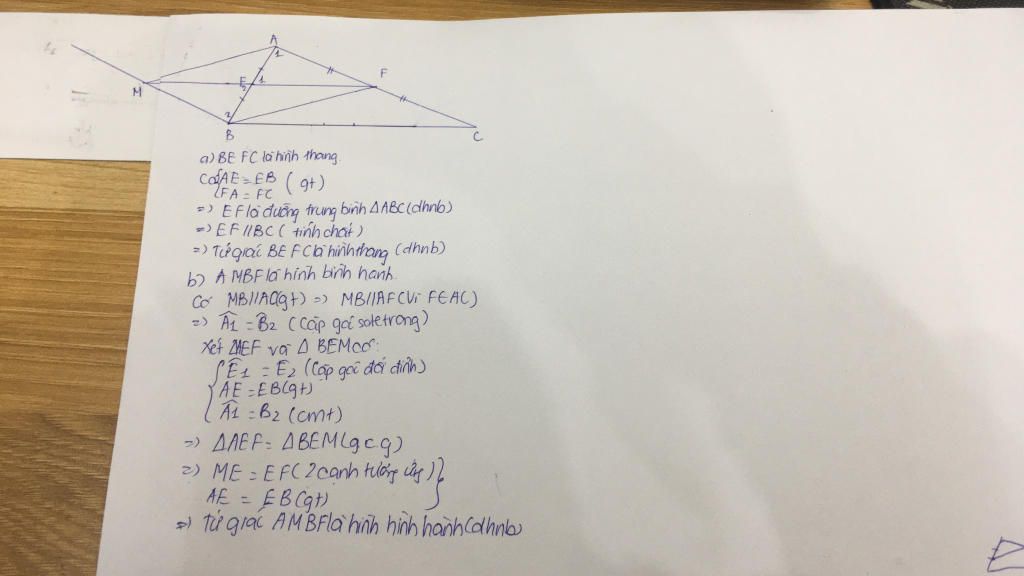 A
1
F
E
1
2
M
2
B
C
a) BEFC là hình thang.
Có { AE = EB (gt)
FA = FC
=> EF là đường trung bình ΔABC (dhnb)
=> EF // BC ( tính chất )
=> Tứ giác BEFC là hình thang (dhnb)
b) AMBF là hình bình hành.
Có MB//AC(gt) => MB//AF(Vì F∈AC)
=> Â1 = B̂2 (Cặp góc sole trong)
Xét ΔAEF và Δ BEM có:
{ Ê1 = E2 (Cặp góc đối đỉnh)
AE = EB(gt)
Â1 = B2 (cmt)
=> ΔAEF = ΔBEM(gcg)
=> ME = EF ( 2 cạnh tương ứng ) }
AE = EB(gt)
=> Tứ giác AMBF là hình hình hành(dhnb)